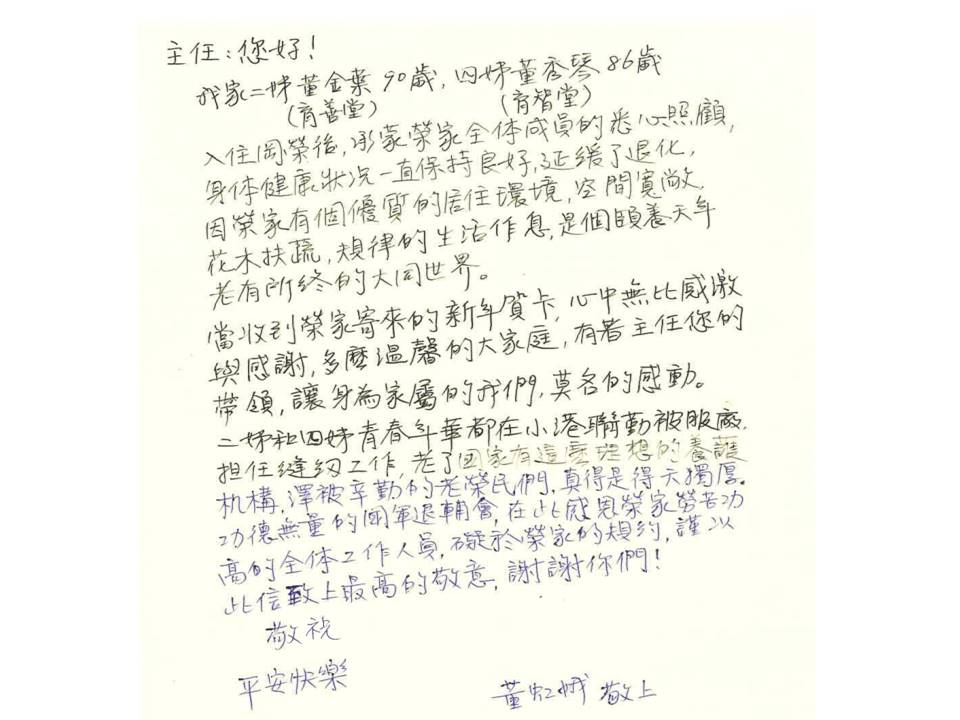 主任:您好!
我家二姊董金葉90歲,四姊董秀琴86歲
(育善堂) (育智堂)
入住岡榮後,承蒙榮家全体成員的悉心照顧,
身体健康狀況一直保持良好,延緩了退化,
因榮家有個優質的居住環境,空間寬敞,
花木扶疏,規律的生活作息,是個頤養天年
老有所終的大同世界。
當收到榮家寄來的新年賀卡,心中無比感激
與感謝,多麼溫馨的大家庭,有著主任您的
帶領,讓身為家屬的我們,莫名的感動。
二姊和四姊青春年華都在小港聯勤被服廠,
担任縫紉工作,老了国家有這麼理想的養護
机構,澤被辛勤的老榮民們,真得是得天獨厚。
功德無量的國軍退輔會,在此感恩榮家勞苦功
高的全体工作人員,礙於榮家的規約,謹以
此信致上最高的敬意,謝謝你們!
敬祝
平安快樂
董虹娥 敬上